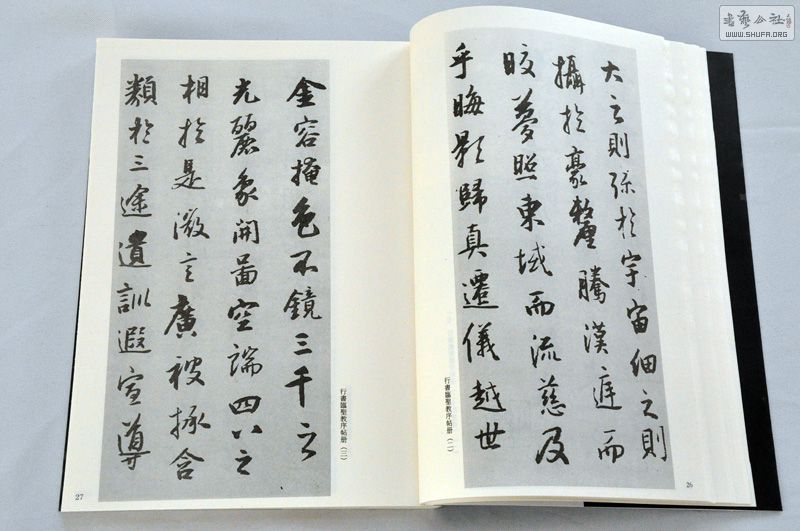 书藝公社
WWW.SHUFA.ORG
大之則弥於宇宙細之則
攝於豪釐騰漢庭而
皎夢照東域而流慈及
乎晦影歸真遷儀越世
行書臨聖教序帖册（二）
26
金容掩色不鏡三千之
光麗象開啚空端四八之
相於是微言廣被拯含
類於三途遺訓遐宣導
行書臨聖教序帖册（三）
27